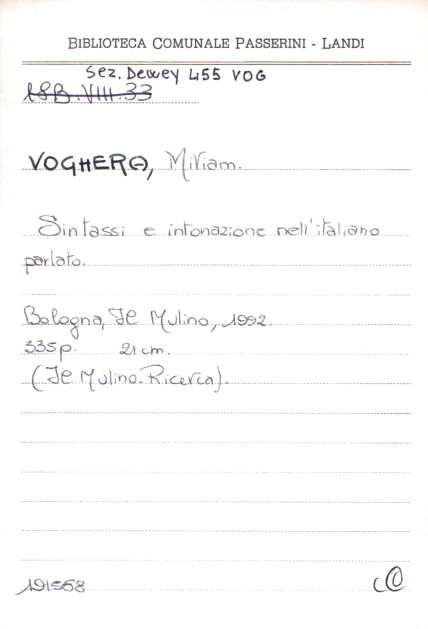 BIBLIOTECA COMUNALE PASSERINI - LANDI
Sez. Dewey 455 VOG
LSB.VIII.33
VOGHERA, Miriam.
Sintassi e intonazione nell'italiano
parlato.
Bologna, Il Mulino, 1992.
335 p. 21 cm.
(Il Mulino. Ricerca).
191568